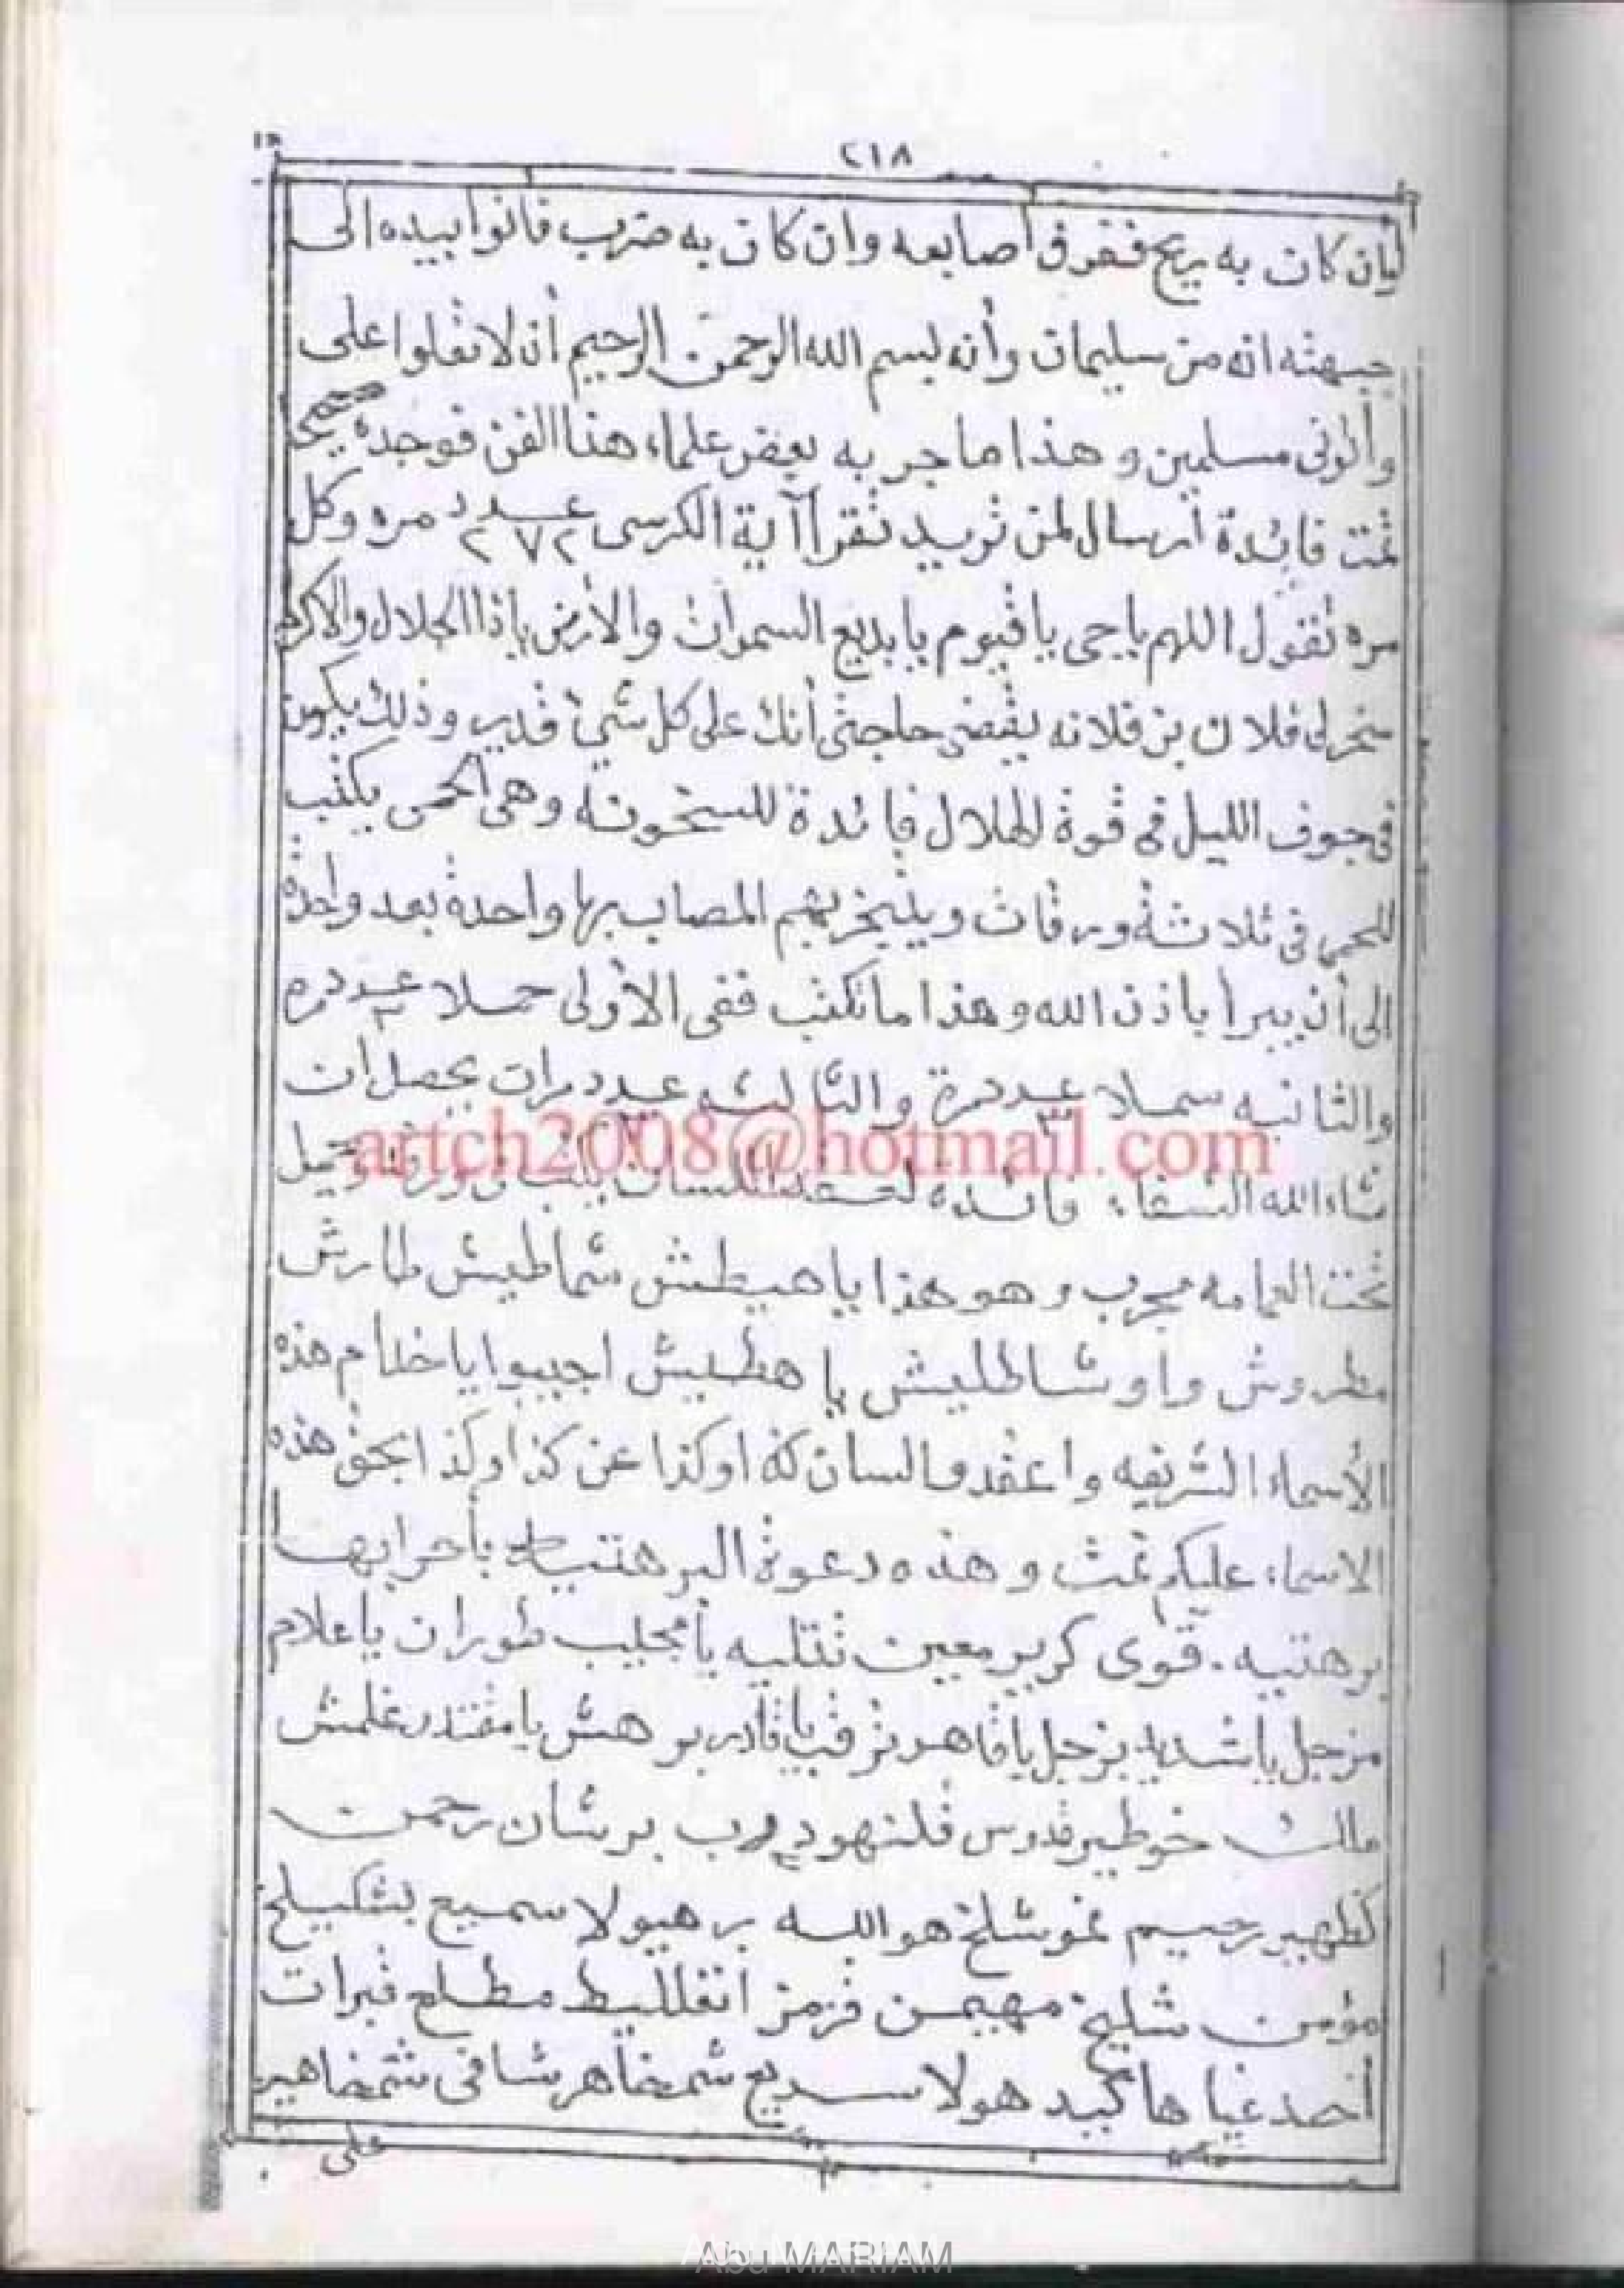 ٢١٨
فإن كان به ريح ففرق أصابعه وان كان به ضرب فاتوا بيده الى
جبهته انه من سليمان وأنه بسم الله الرحمن الرحيم أن لا تعلوا على
وأتونى مسلمين وهذا ما جربه بعض علماء هذا الفن فوجده صحيح
تمت فائدة أرسال لمن تريد تقرأ آية الكرسى عدد ٢٧٢ مره وكل
مره تقول اللهم ياحى يا قيوم يا بديع السموات والأرض ياذا الجلال والاكرام
سخر لى فلان بن فلانه يقضى حاجتى أنك على كل شئ قدير وذلك يكون
فى جوف الليل فى قوة الهلال فائدة للسخونه وهى الحمى يكتب
للحمى فى ثلاثة ورقات ويتبخر بهم المصاب بها واحدة بعد واحدة
الى أن يبرأ باذن الله وهذا ما تكتب ففى الأولى حملا عدد مره
والثانيه سملا عدد مرة والثالثه عدد مرات يحصل ان
artch2008@hotmail.com
شاء الله الشفاء فائده لعقد اللسان يكتب فى ورقه وتحمل
تحت العمامه مجرب وهو هذا يا هيطش شماطيش طارش
مطروش واوشاطليش يا هطيش اجيبوا يا خدام هذه
الأسماء الشريفه واعقدوا لسان كذا وكذا عن كذا وكذا بحق هذه
الاسماء عليكم تمت وهذه دعوة البرهتيه بأعرابها
برهتيه قوى كرير معين تتليه يا مجيب طوران يا علام
مزجل يا شديد بزجل يا قاهر ترقب يا قادر برهش يا مقتدر غلمش
ملك خوطير قدوس قلنهود رب برشان رحمن
كظهير رحيم نموشلخ هو الله برهيولا سميع بشكيلخ
مؤمن شليخ مهيمن قزمز انغلليط مطلع قبرات
أحمد غيا ها كيد هولا سريع شمخاهر شافى شمخاهير
على
Abu MARIAM